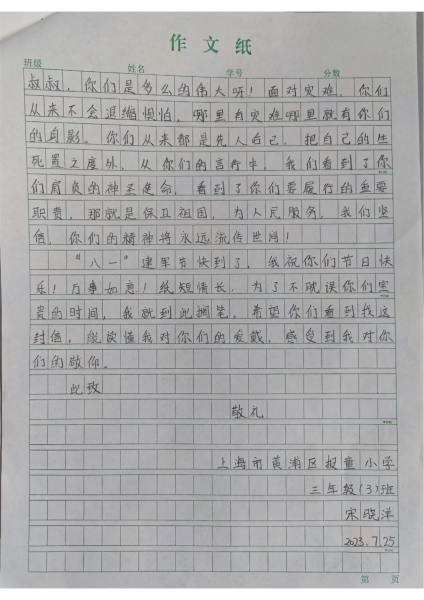 作文纸
班级 姓名 学号 分数
叔叔，你们是多么的伟大呀！面对灾难，你们
从来不会退缩惧怕，哪里有灾难哪里就有你们
的身影。你们从来都是先人后己，把自己的生
死置之度外，从你们的言行中，我们看到了你
们肩负的神圣使命，看到了你们要履行的重要
职责，那就是保卫祖国，为人民服务。我们坚
信，你们的精神将永远流传世间！
“八一”建军节快到了，我祝你们节日快
乐！万事如意！纸短情长，为了不耽误你们宝
贵的时间，我就到此搁笔。希望你们看到我这
封信，能读懂我对你们的爱戴，感受到我对你
们的敬仰。
此致
敬礼
上海市黄浦区报童小学
三年级（3）班
宋晓洋
2023.7.25
第 页